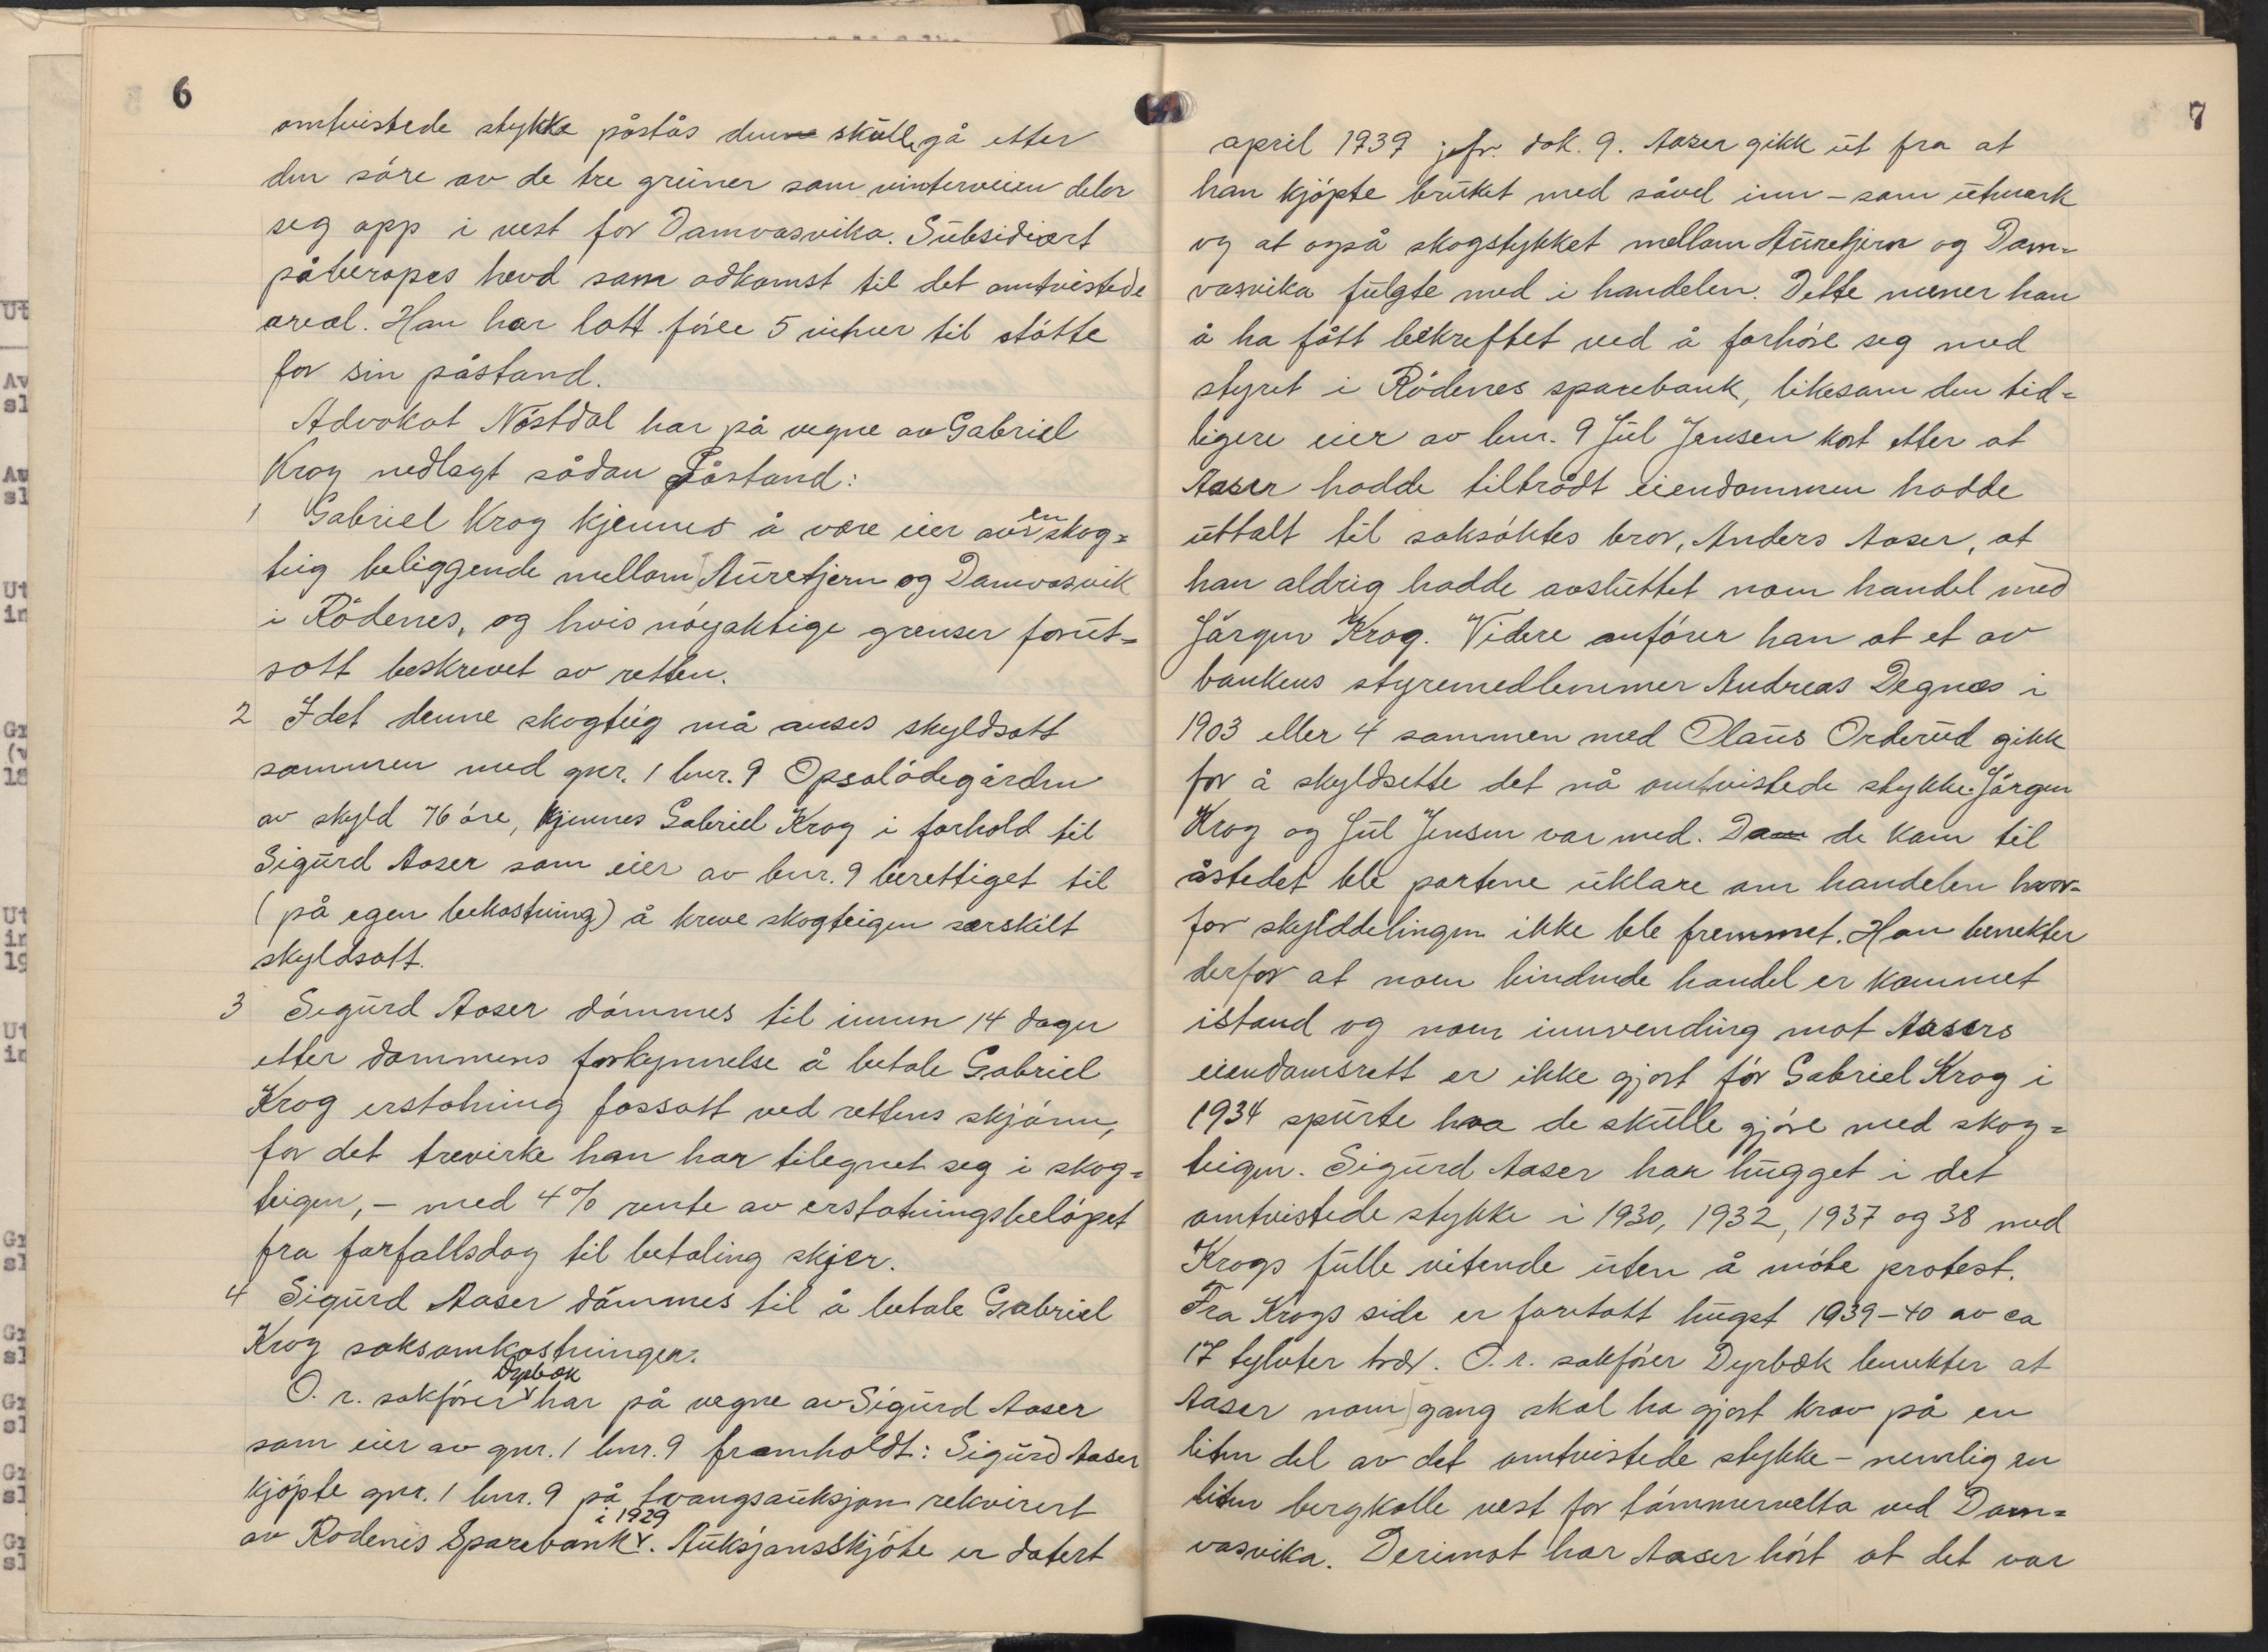 6
omtvistede stykke påstås denne skulle gå etter
den søre av de tre greiner som vinterveien deler
seg opp i vest for Damvasvika. Subsidiært
påberopes hevd som adkomst til det omtvistede
areal. Han har latt føre 5 vitner til støtte
for sin påstand.
Advokat Nøstdal har på vegne av Gabriel
Krog nedlagt sådan Påstand:
1 Gabriel Krog kjennes å være eier av en skog=
teig beliggende mellom Auretjern og Damvasvik
i Rødenes, og hvis nøyaktige grenser forut=
satt beskrevet av retten.
2 Idet denne skogteig må anses skyldsatt
sammen med gnr. 1 bnr. 9 Opsalødegården
av skyld 76 øre, kjennes Gabriel Krog i forhold til
Sigurd Aaser som eier av bnr. 9 berettiget til
(på egen bekostning) å kreve skogteigen særskilt
skyldsatt.
3 Sigurd Aaser dømmes til innen 14 dager
etter dommens forkynnelse å betale Gabriel
Krog erstatning fassatt ved rettens skjønn,
for det trevirke han har tilegnet seg i skog=
teigen, – med 4% rente av erstatningsbeløpet
fra forfallsdag til betaling skjer.
4 Sigurd Aaser dømmes til å betale Gabriel
Krog saksomkostninger.
O. r. sakfører Dyrbæk har på vegne av Sigurd Aaser
som eier av gnr. 1 bnr. 9 framholdt: Sigurd Aaser
kjøpte gnr. 1 bnr. 9 på tvangsauksjon rekvirert
av Rødenes Sparebank i 1929. Auksjonsskjøte er datert
7
april 1939 jefr. dok. 9. Aaser gikk ut fra at
han kjøpte bruket med såvel inn – som utmark
og at også skogstykket mellom Auretjern og Dam=
vasvika fulgte med i handelen. Dette mener han
å ha fått bekreftet ved å forhøre seg med
styret i Rødenes sparebank, likesom den tid=
ligere eier av bnr. 9 Jul Jensen kort etter at
Aaser hadde tiltrådt eiendommen hadde
uttalt til saksøktes bror, Anders Aaser, at
han aldrig hadde avsluttet noen handel med
Jørgen Krog. Videre anfører han at et av
bankens styremedlemmer Andreas Degnæs i
1903 eller 4 sammen med Olaus Orderud gikk
for å skyldsette det nå omtvistede stykke. Jørgen
Krog og Jul Jensen var med. Da de kom til
åstedet ble partene uklare om handelen hvor=
for skylddelingen ikke ble fremmet. Han benekter
derfor at noen bindende handel er kommet
istand og noen innvending mot Aasers
eiendomsrett er ikke gjort før Gabriel Krog i
1934 spurte hva de skulle gjøre med skog=
teigen. Sigurd Aaser har hugget i det
omtvistede stykke i 1930, 1932, 1937 og 38 med
Krogs fulle vitende uten å møte protest.
Fra Krogs side er foretatt hugst 1939–40 av ca
17 tylvter trær. O. r. sakfører Dyrbæk benekter at
Aaser noen gang skal ha gjort krav på en
liten del av det omtvistede stykke – nemlig en
liten bergkolle vest for tømmervelta ved Dam=
vasvika. Derimot har Aaser hørt at det var